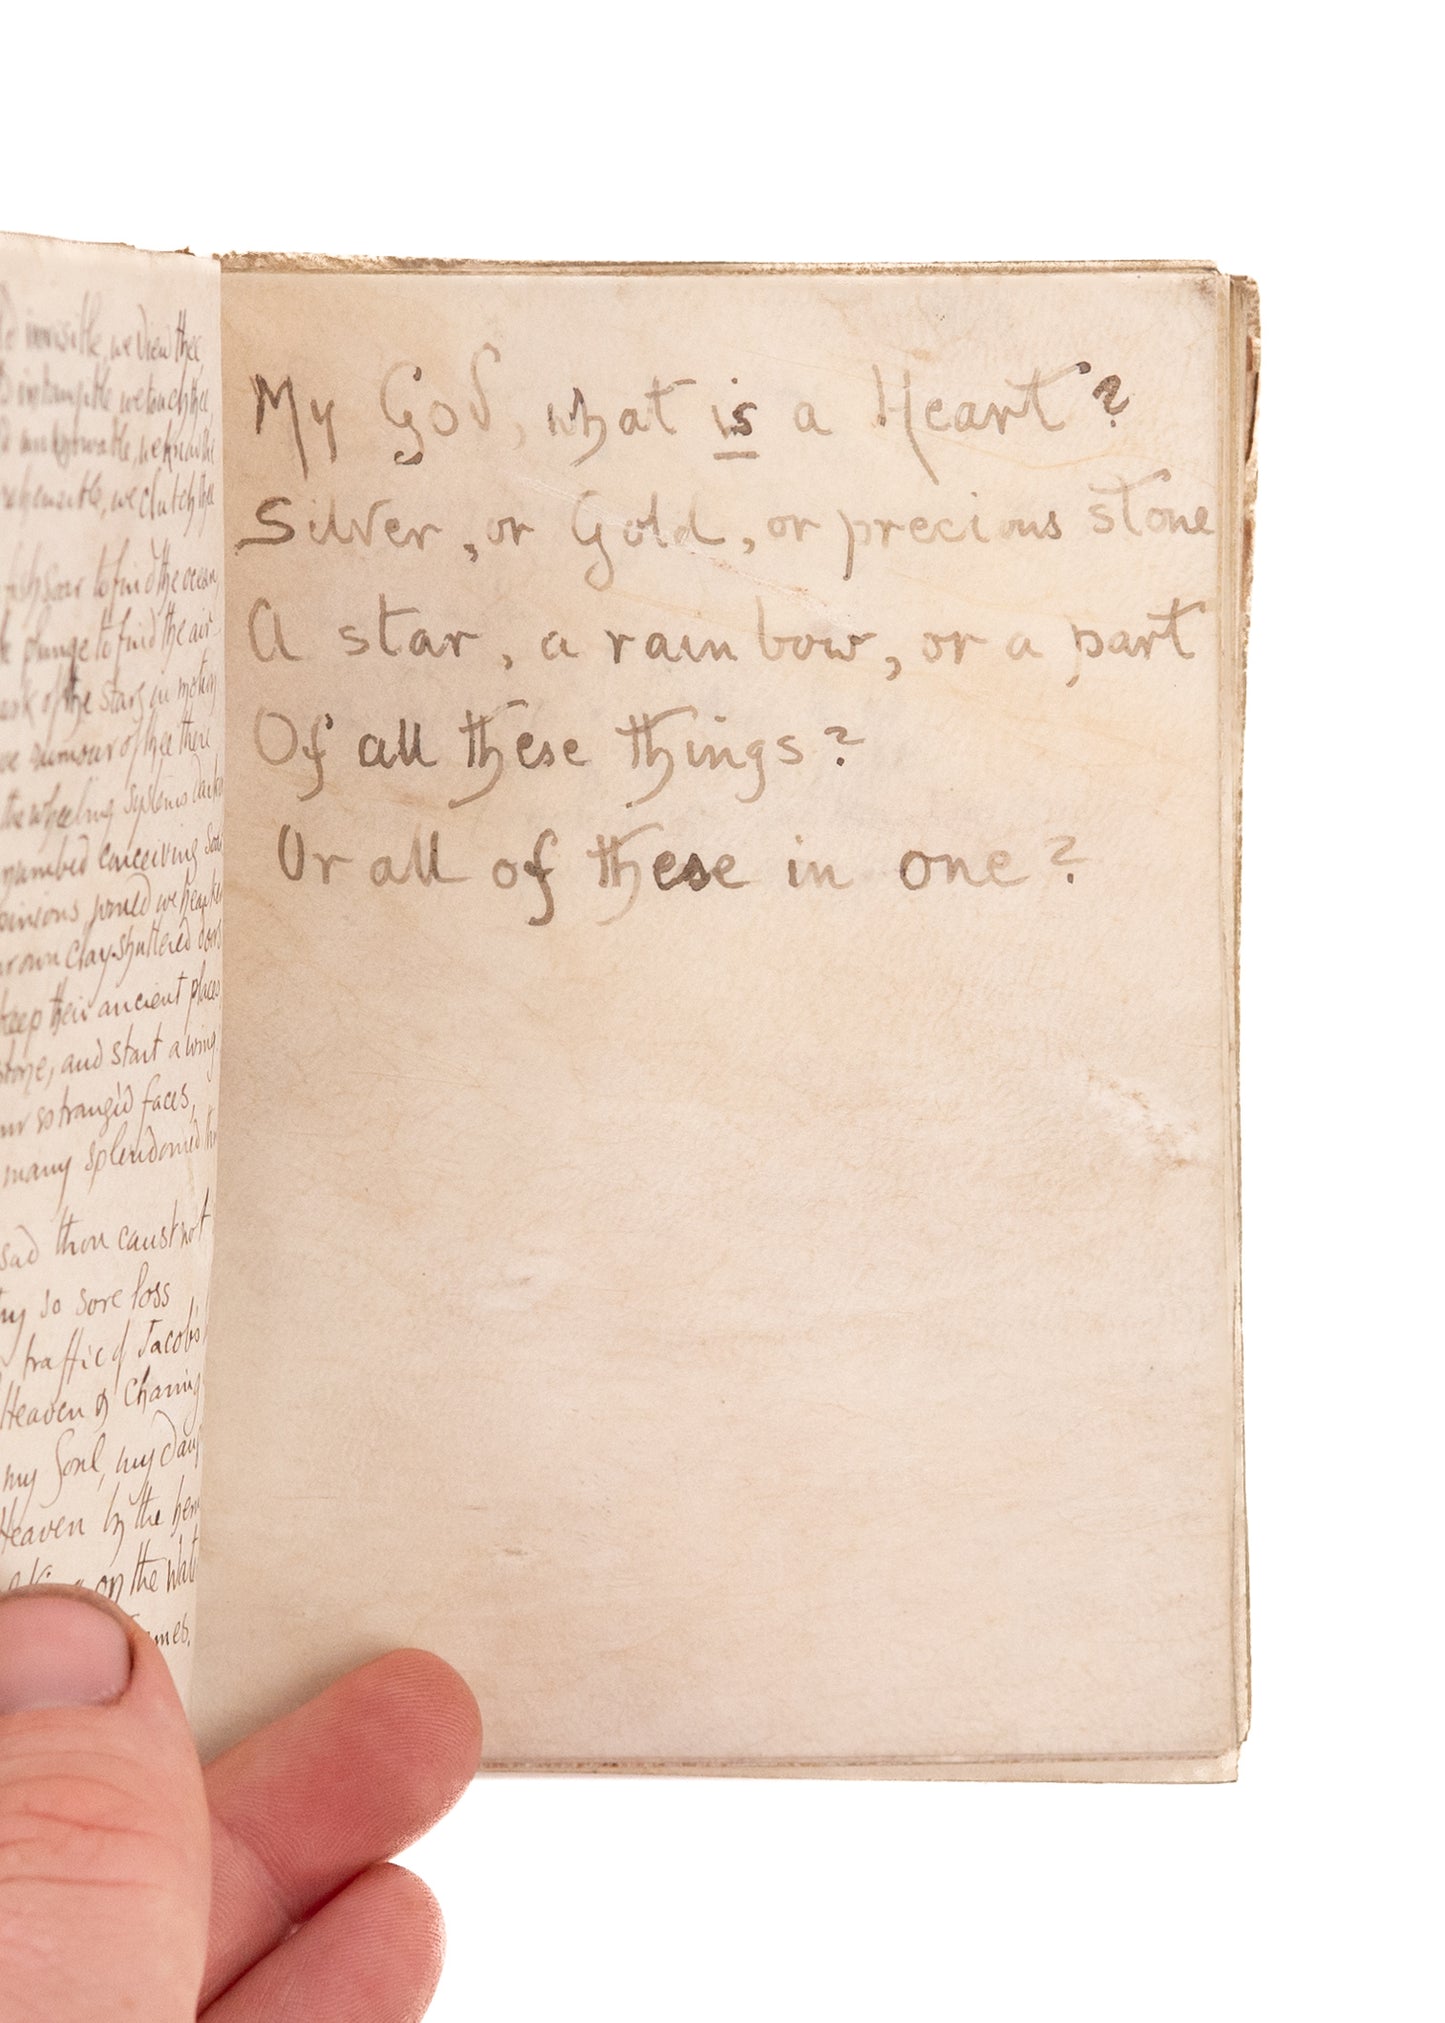 invisible, we view thee
intangible, we touch thee,
unknowable, we know thee
we clutch thee
soar to find the ocean,
plunge to find the air
of the stars in motion
rumour of thee there
the wheeling systems darken
benumbed conceiving soars
pinions, would we hearken
own clay-shuttered doors
keep their ancient places
stone, and start a wing.
estrangèd faces,
many splendoured
sad thou canst not
so sore loss
traffic of Jacob's
Heaven & Charing
my Soul, my daug
Heaven by the hem
on the wat
ames.
My God, what is a Heart?
Silver, or Gold, or precious stone
A star, a rainbow, or a part
Of all these things?
Or all of these in one?